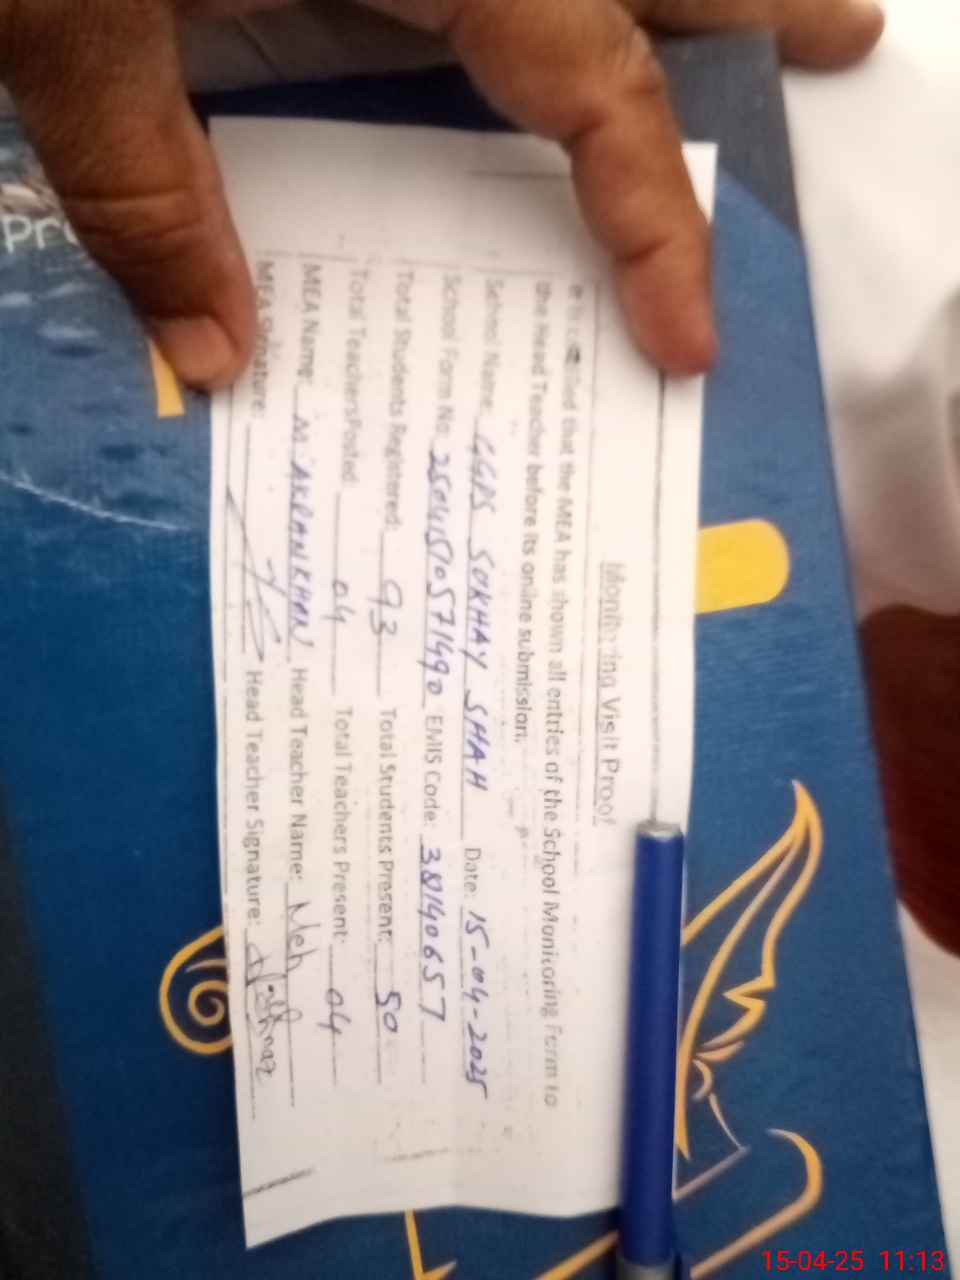 Monitoring Visit Proof
that the MEA has shown all entries of the School Monitoring Form to
the Head Teacher before its online submission.
School Name: GGPS SUKHAY SHAH Date: 15-04-2025
School Form No: 25041510571490 EMIS Code: 38140657
Total Students Registered: 93 Total Students Present: 50
Total Teachers Posted: 04 Total Teachers Present: 04
MEA Name: M. AKRAN KHAN Head Teacher Name:
MEA Signature: Head Teacher Signature:
15-04-25 11:13